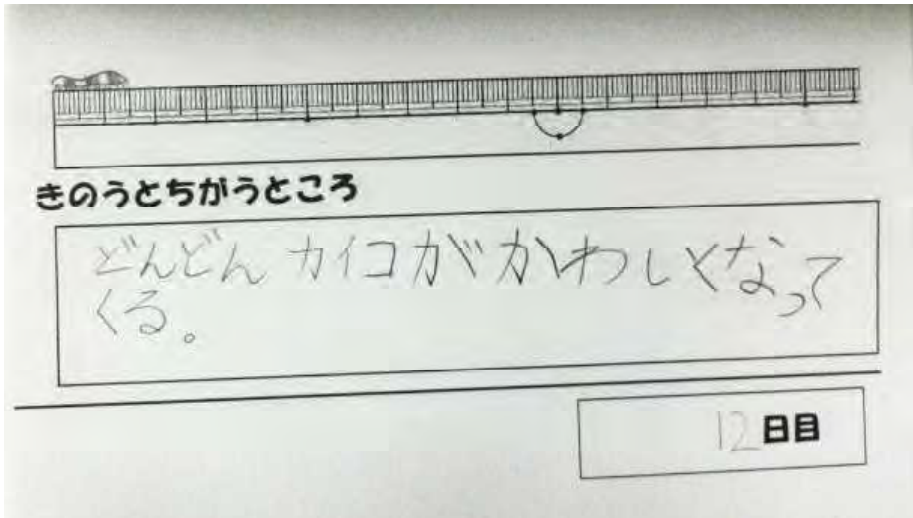 きのうとちがうところ
どんどんカイコがかわしくなって
くる。
12日目